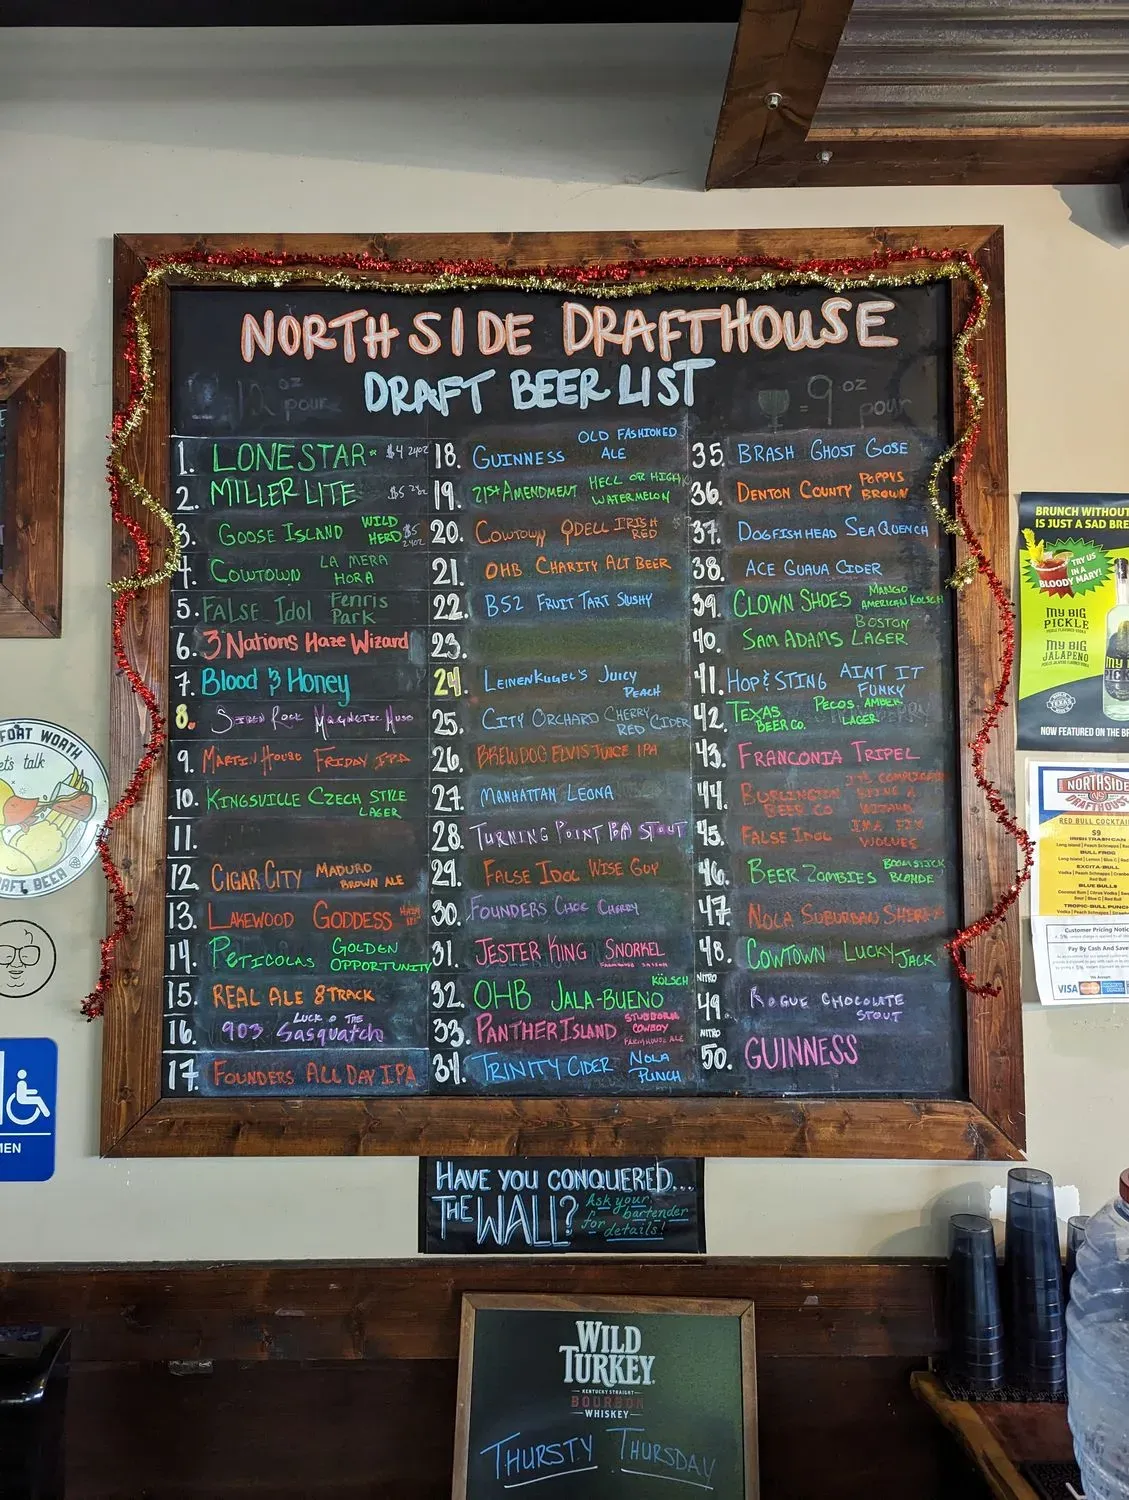 NORTH SIDE DRAFTHOUSE
DRAFT BEER LIST
12 oz pour
= 9 oz pour
1. LONESTAR $4 24oz
2. MILLER LITE
3. GOOSE ISLAND WILD HERD $5 24oz
4. COWTOWN LA MERA HORA
5. FALSE Idol Fenris Park
6. 3 Nations Haze Wizard
7. Blood & Honey
8. SIREN ROCK
9. MARTIN HOUSE FRIDAY IPA
10. KINGSVILLE CZECH STYLE LAGER
11.
12. CIGAR CITY MADURO BROWN ALE
13. LAKEWOOD GODDESS
14. PETICOLAS GOLDEN OPPORTUNITY
15. REAL ALE 8 TRACK
16. 903 LUCK O THE Sasquatch
17. FOUNDERS ALL DAY IPA
18. GUINNESS OLD FASHIONED ALE
19. 21st AMENDMENT HELL OR HIGH WATERMELON
20. COWTOWN ODELL IRISH RED
21. OHB CHARITY ALT BEER
22. B52 FRUIT TART SLUSHY
23.
24. LEINENKUGEL'S JUICY PEACH
25. CITY ORCHARD CHERRY RED CIDER
26. BREWDOG ELVIS JUICE IPA
27. MANHATTAN LEONA
28. TURNING POINT BA STOUT
29. FALSE IDOL WISE GUY
30. FOUNDERS CHOC CHERRY
31. JESTER KING SNORKEL
32. OHB JALA-BUENO KÖLSCH
33. PANTHER ISLAND STUBBORN COWBOY FARMHOUSE ALE
34. TRINITY CIDER NOLA PUNCH
35. BRASH GHOST GOSE
36. DENTON COUNTY POPPYS BROWN
37. DOGFISH HEAD SEA QUENCH
38. ACE GUAVA CIDER
39. CLOWN SHOES MANGO AMERICAN KOLSCH
40. SAM ADAMS BOSTON LAGER
41. HOP & STING AINT IT FUNKY
42. TEXAS BEER CO. PECOS AMBER LAGER
43. FRANCONIA TRIPEL
44. BURLINGTON BEER CO IT'S COMPLICATED BEING A WIZARD
45. FALSE IDOL
46. BEER ZOMBIES BOOMSTICK BLONDE
47. NOLA SUBURBAN
48. COWTOWN LUCKY JACK
NITRO 49. ROGUE CHOCOLATE STOUT
NITRO 50. GUINNESS
HAVE YOU CONQUERED...
THE WALL? Ask your bartender for details!
WILD
TURKEY
KENTUCKY STRAIGHT
BOURBON
WHISKEY
THURSTY THURSDAY
FORT WORTH
let's talk
CRAFT BEER
MEN
BRUNCH WITHOUT
IS JUST A SAD
TRY US
IN A
BLOODY MARY!
MY BIG
PICKLE
MY BIG
JALAPENO
NOW FEATURED ON THE
NORTHSIDE
DRAFTHOUSE
RED BULL COCKTAILS
$9
IRISH TRASH CAN
BULL FROG
EXCITA-BULL
BLUE BULLS
TROPIC-BULL PUNCH
Customer Pricing Notice
Pay By Cash And Save
VISA